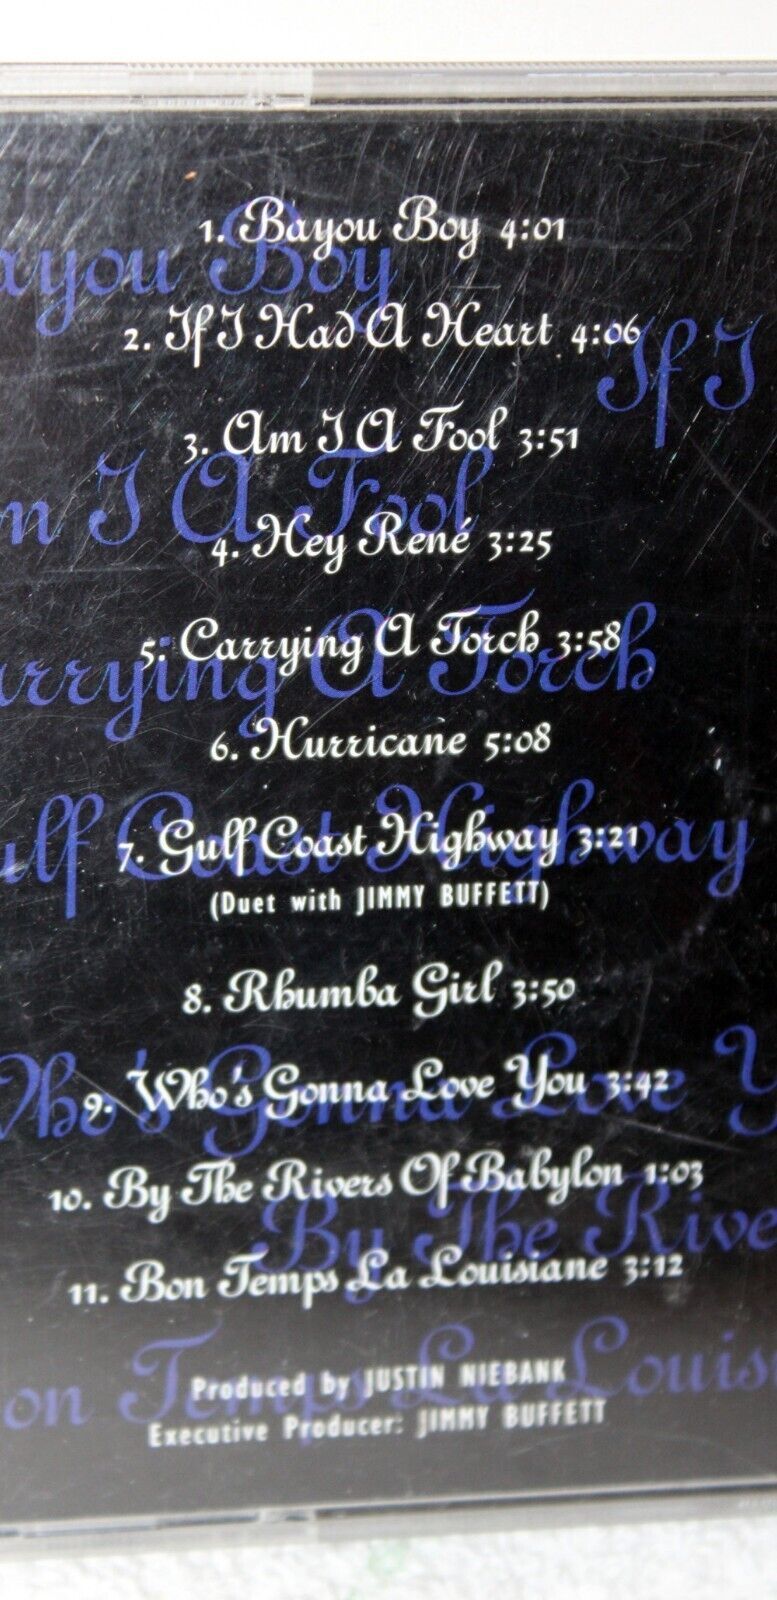 1. Bayou Boy 4:01
ayou Boy
2. If I Had A Heart 4:06
If I
3. Am I A Fool 3:51
m I A Fool
4. Hey René 3:25
5. Carrying A Torch 3:58
arrying A Torch
6. Hurricane 5:08
7. Gulf Coast Highway 3:21
ulf Coast Highway
(Duet with JIMMY BUFFETT)
8. Rhumba Girl 3:50
9. Who's Gonna Love You 3:42
Who's Gonna Love Y
10. By The Rivers Of Babylon 1:03
By The Rive
11. Bon Temps La Louisiane 3:12
on Temps La Louisi
Produced by JUSTIN NIEBANK
Executive Producer: JIMMY BUFFETT